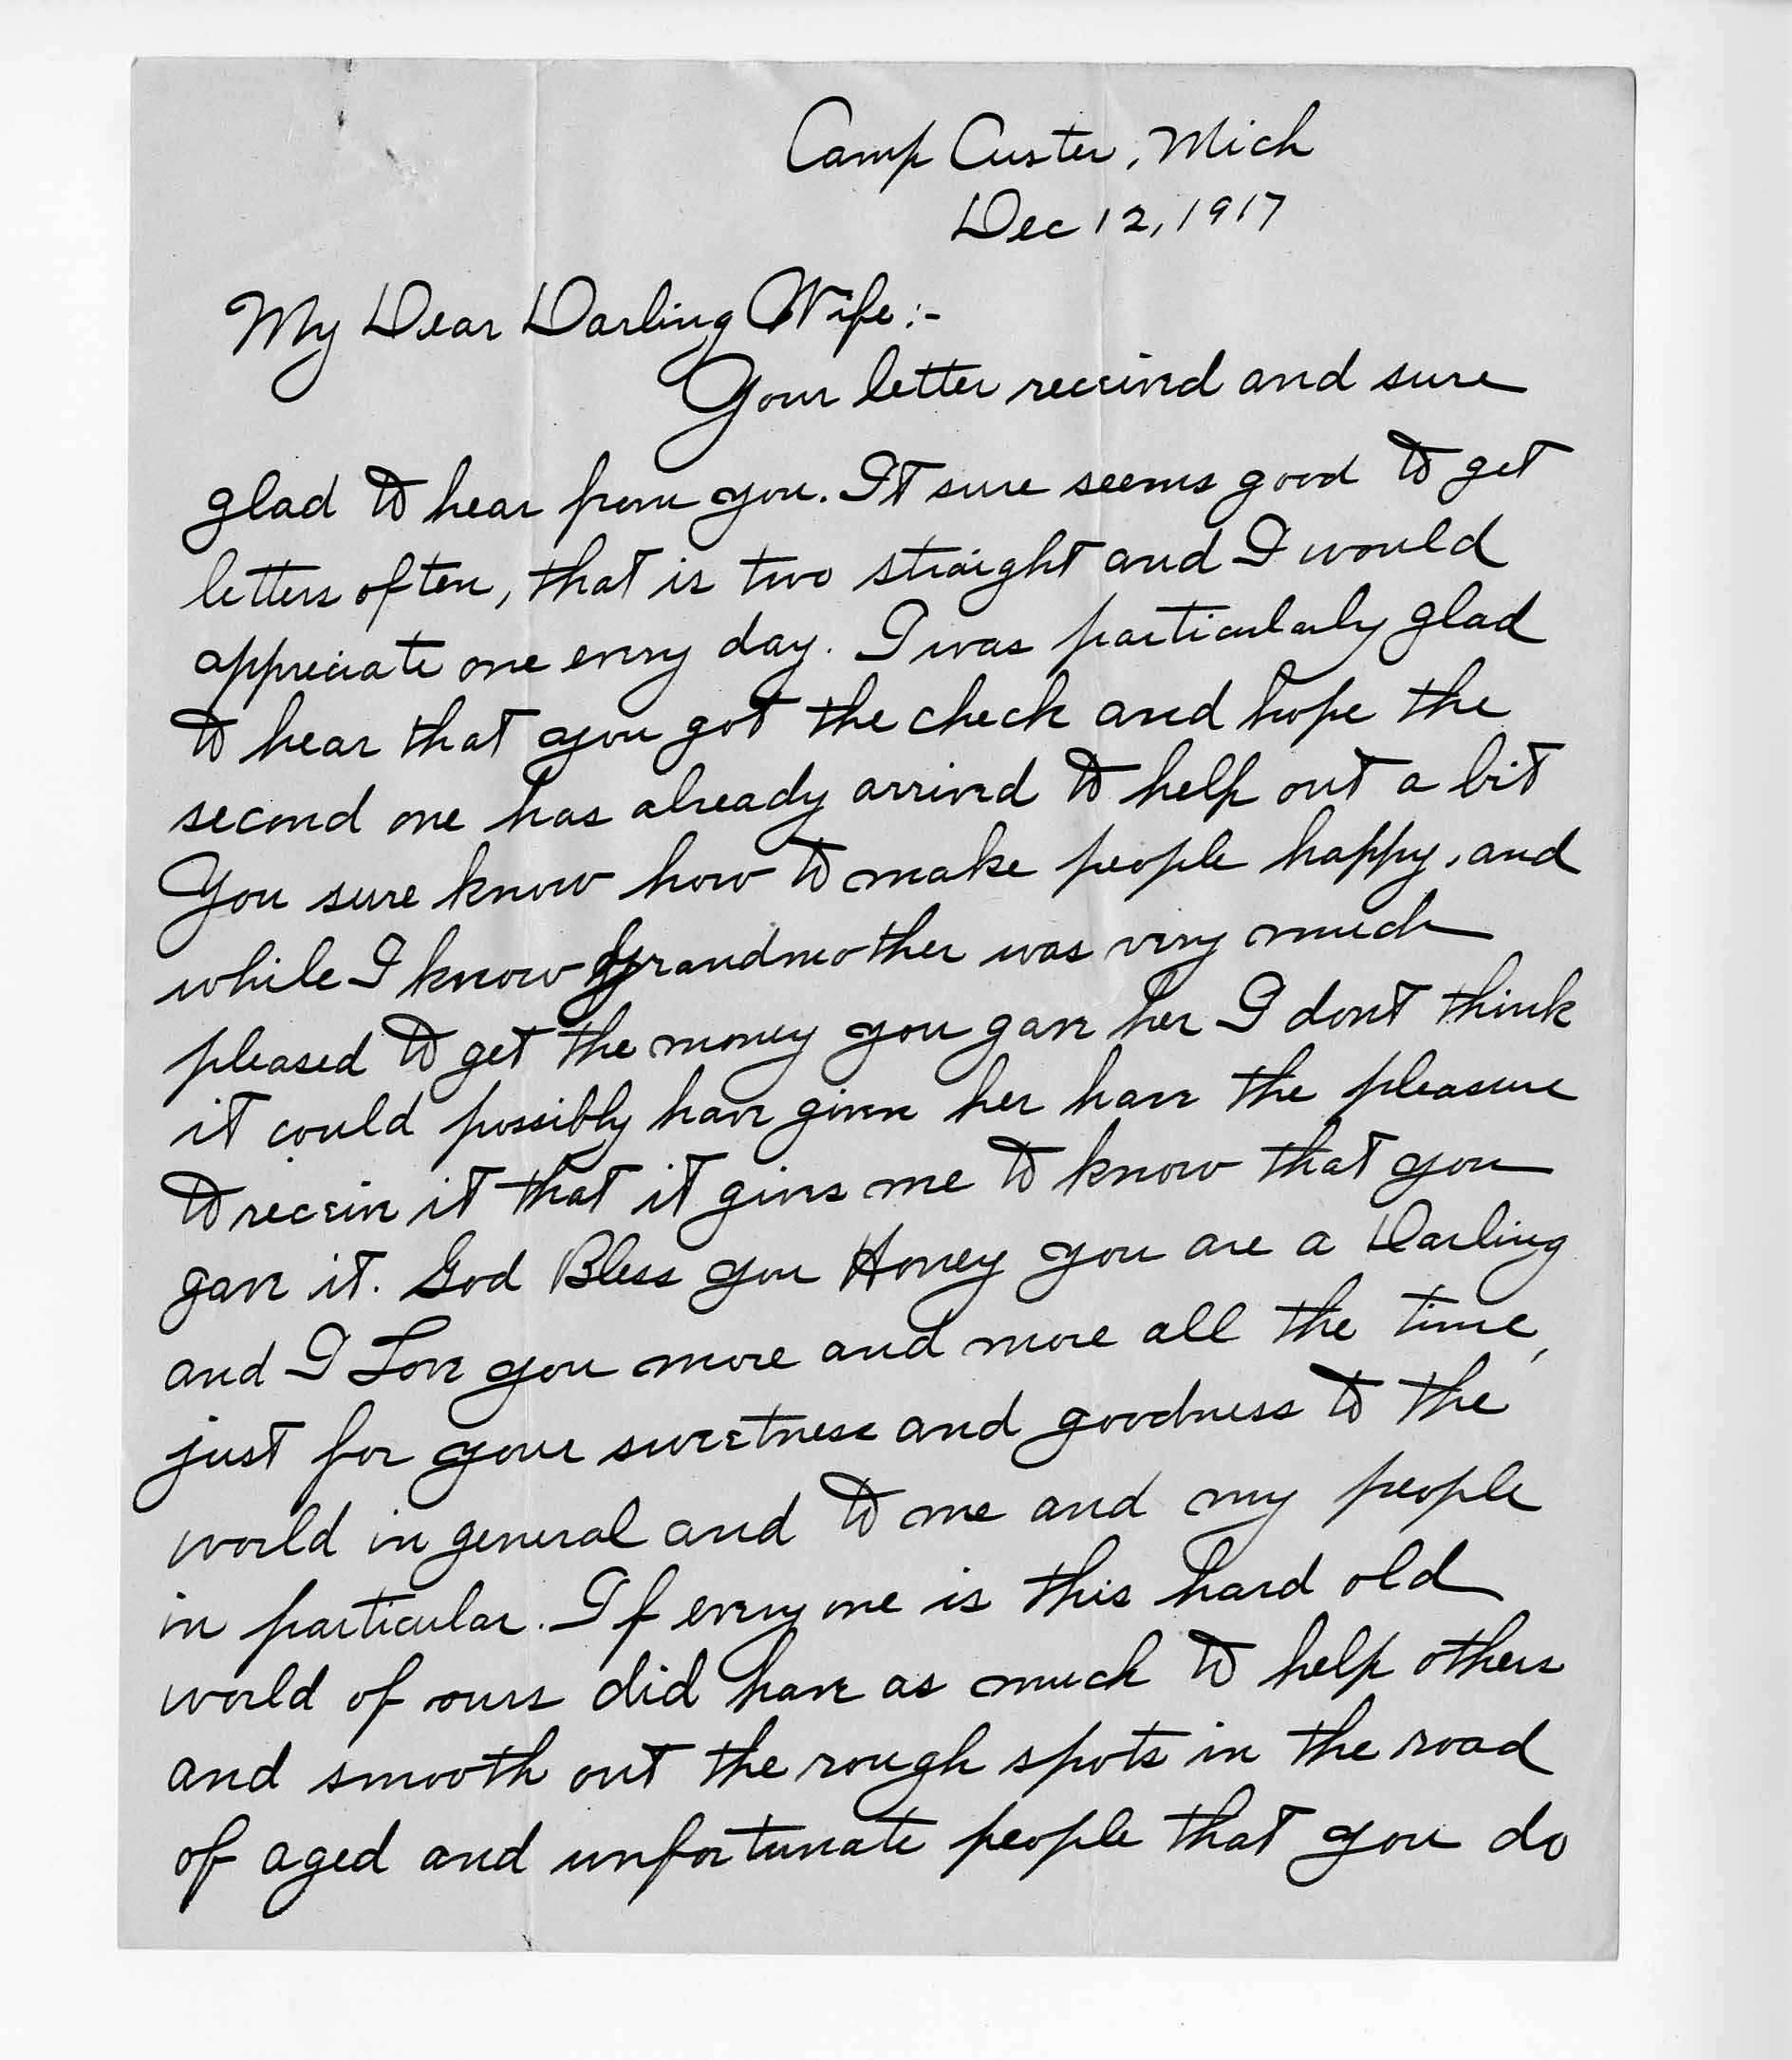 Camp Custer, Mich
Dec 12, 1917
My Dear Darling Wife:-
Your letter received and sure
glad to hear from you. It sure seems good to get
letters often, that is two straight and I would
appreciate one every day. I was particularly glad
to hear that you got the check and hope the
second one has already arrived to help out a bit
You sure know how to make people happy, and
while I know Grandmother was very much
pleased to get the money you gave her I dont think
it could possibly have given her have the pleasure
to receive it that it gives me to know that you
gave it. God Bless you Honey you are a Darling
and I Love you more and more all the time,
just for your sweetness and goodness to the
world in general and to me and my people
in particular. If every one is this hard old
world of ours did have as much to help others
and smooth out the rough spots in the road
of aged and unfortunate people that you do